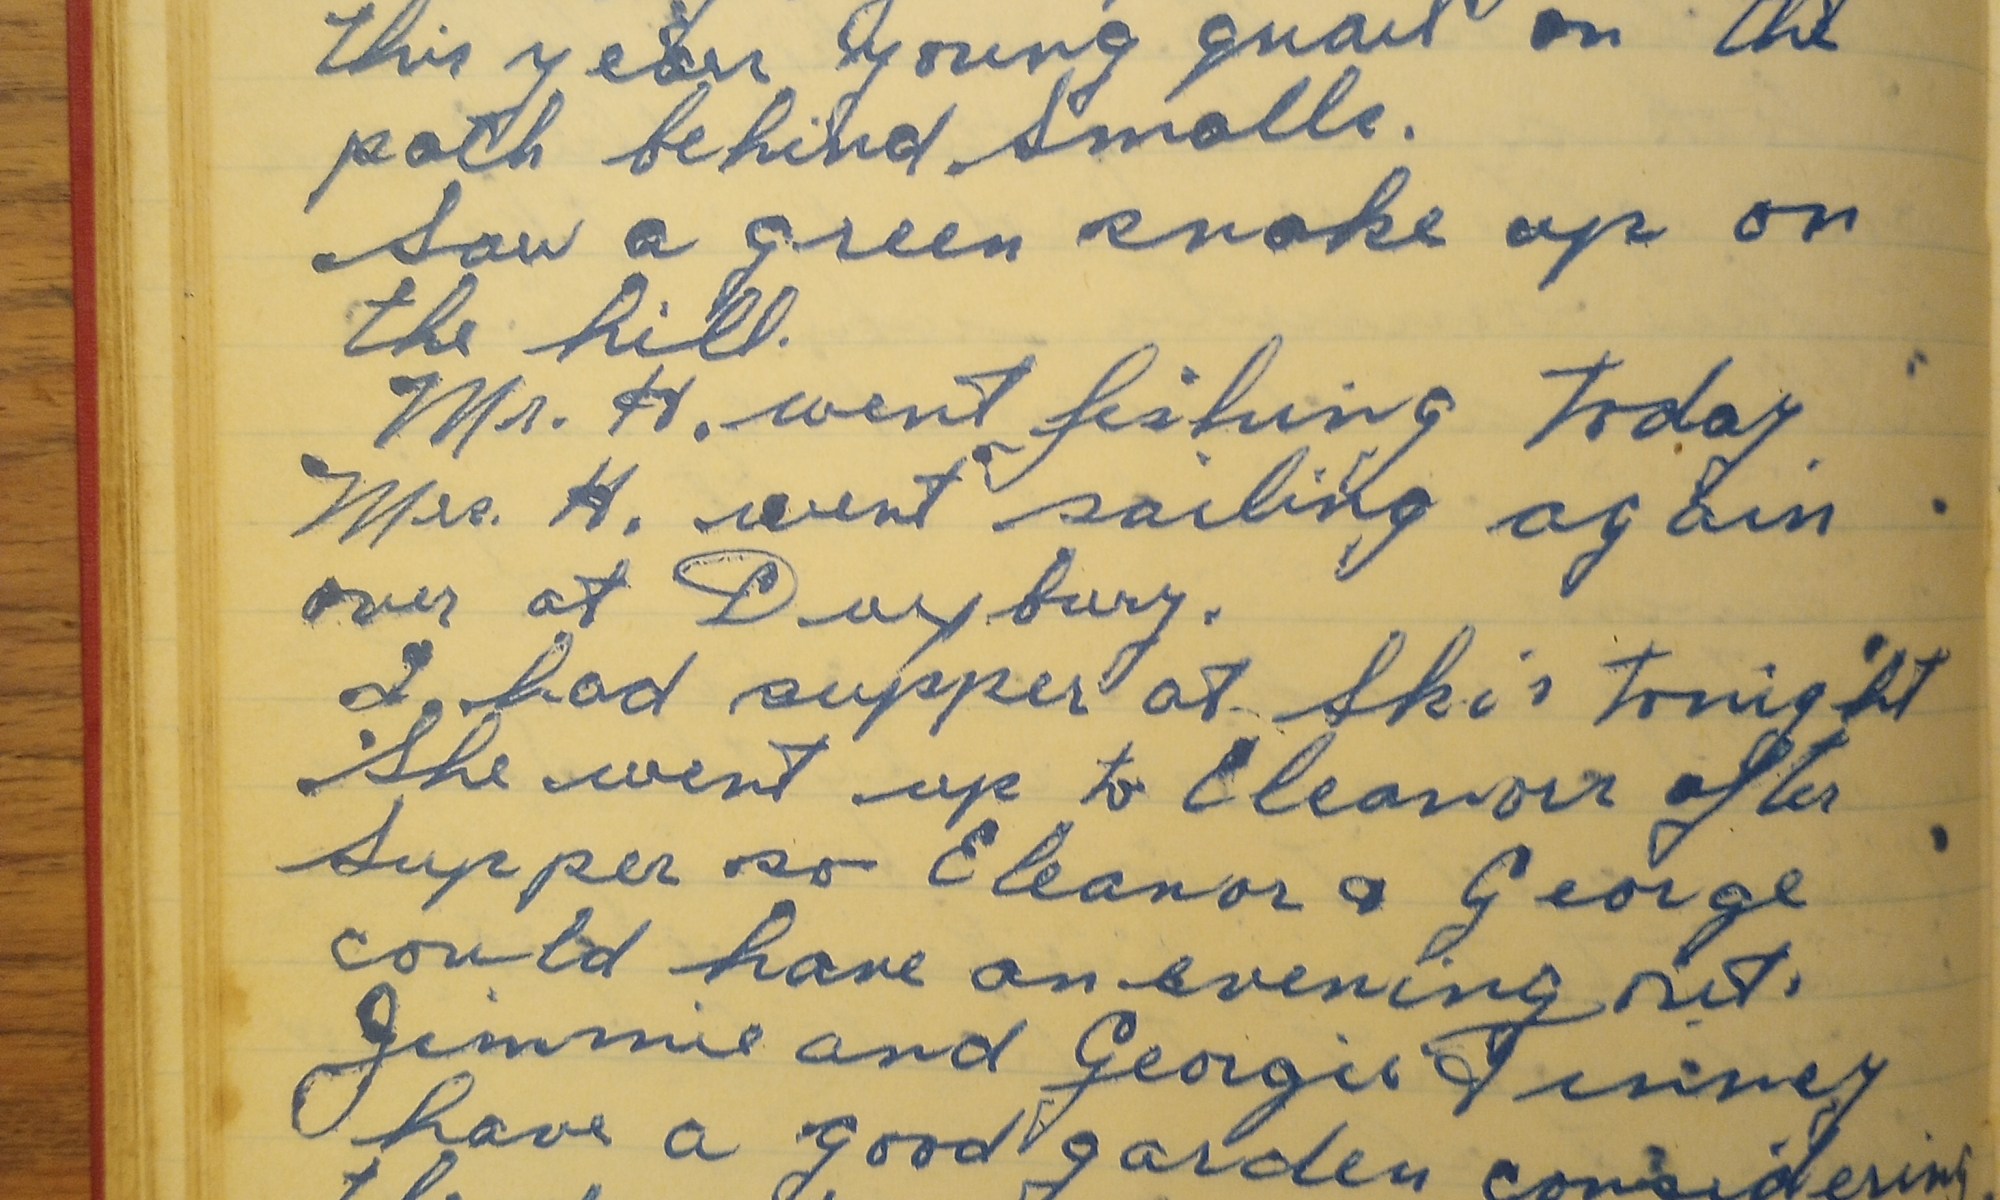 this years young quail on the
path behind Smalls.
Saw a green snake up on
the hill.
Mr. H. went fishing today
Mrs. H. went sailing again
over at Duxbury.
I had supper at Ski's tonight
She went up to Eleanors after
supper so Eleanor & George
could have an evening out.
Jimmie and Georgie Finney
have a good garden considering